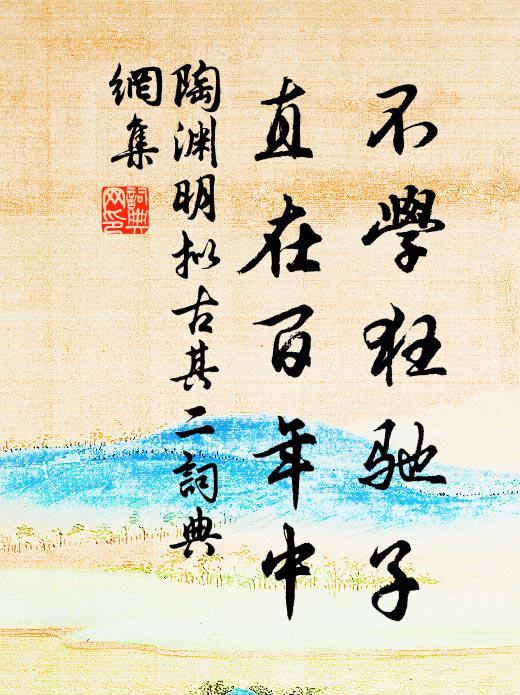 不學狂馳子
直在百年中
陶渊明拟古其二詞典
網集
詞典
网印